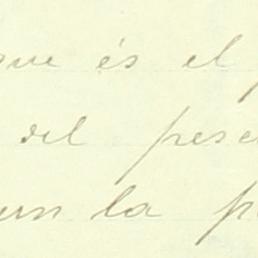 que és el
del pese
un la p